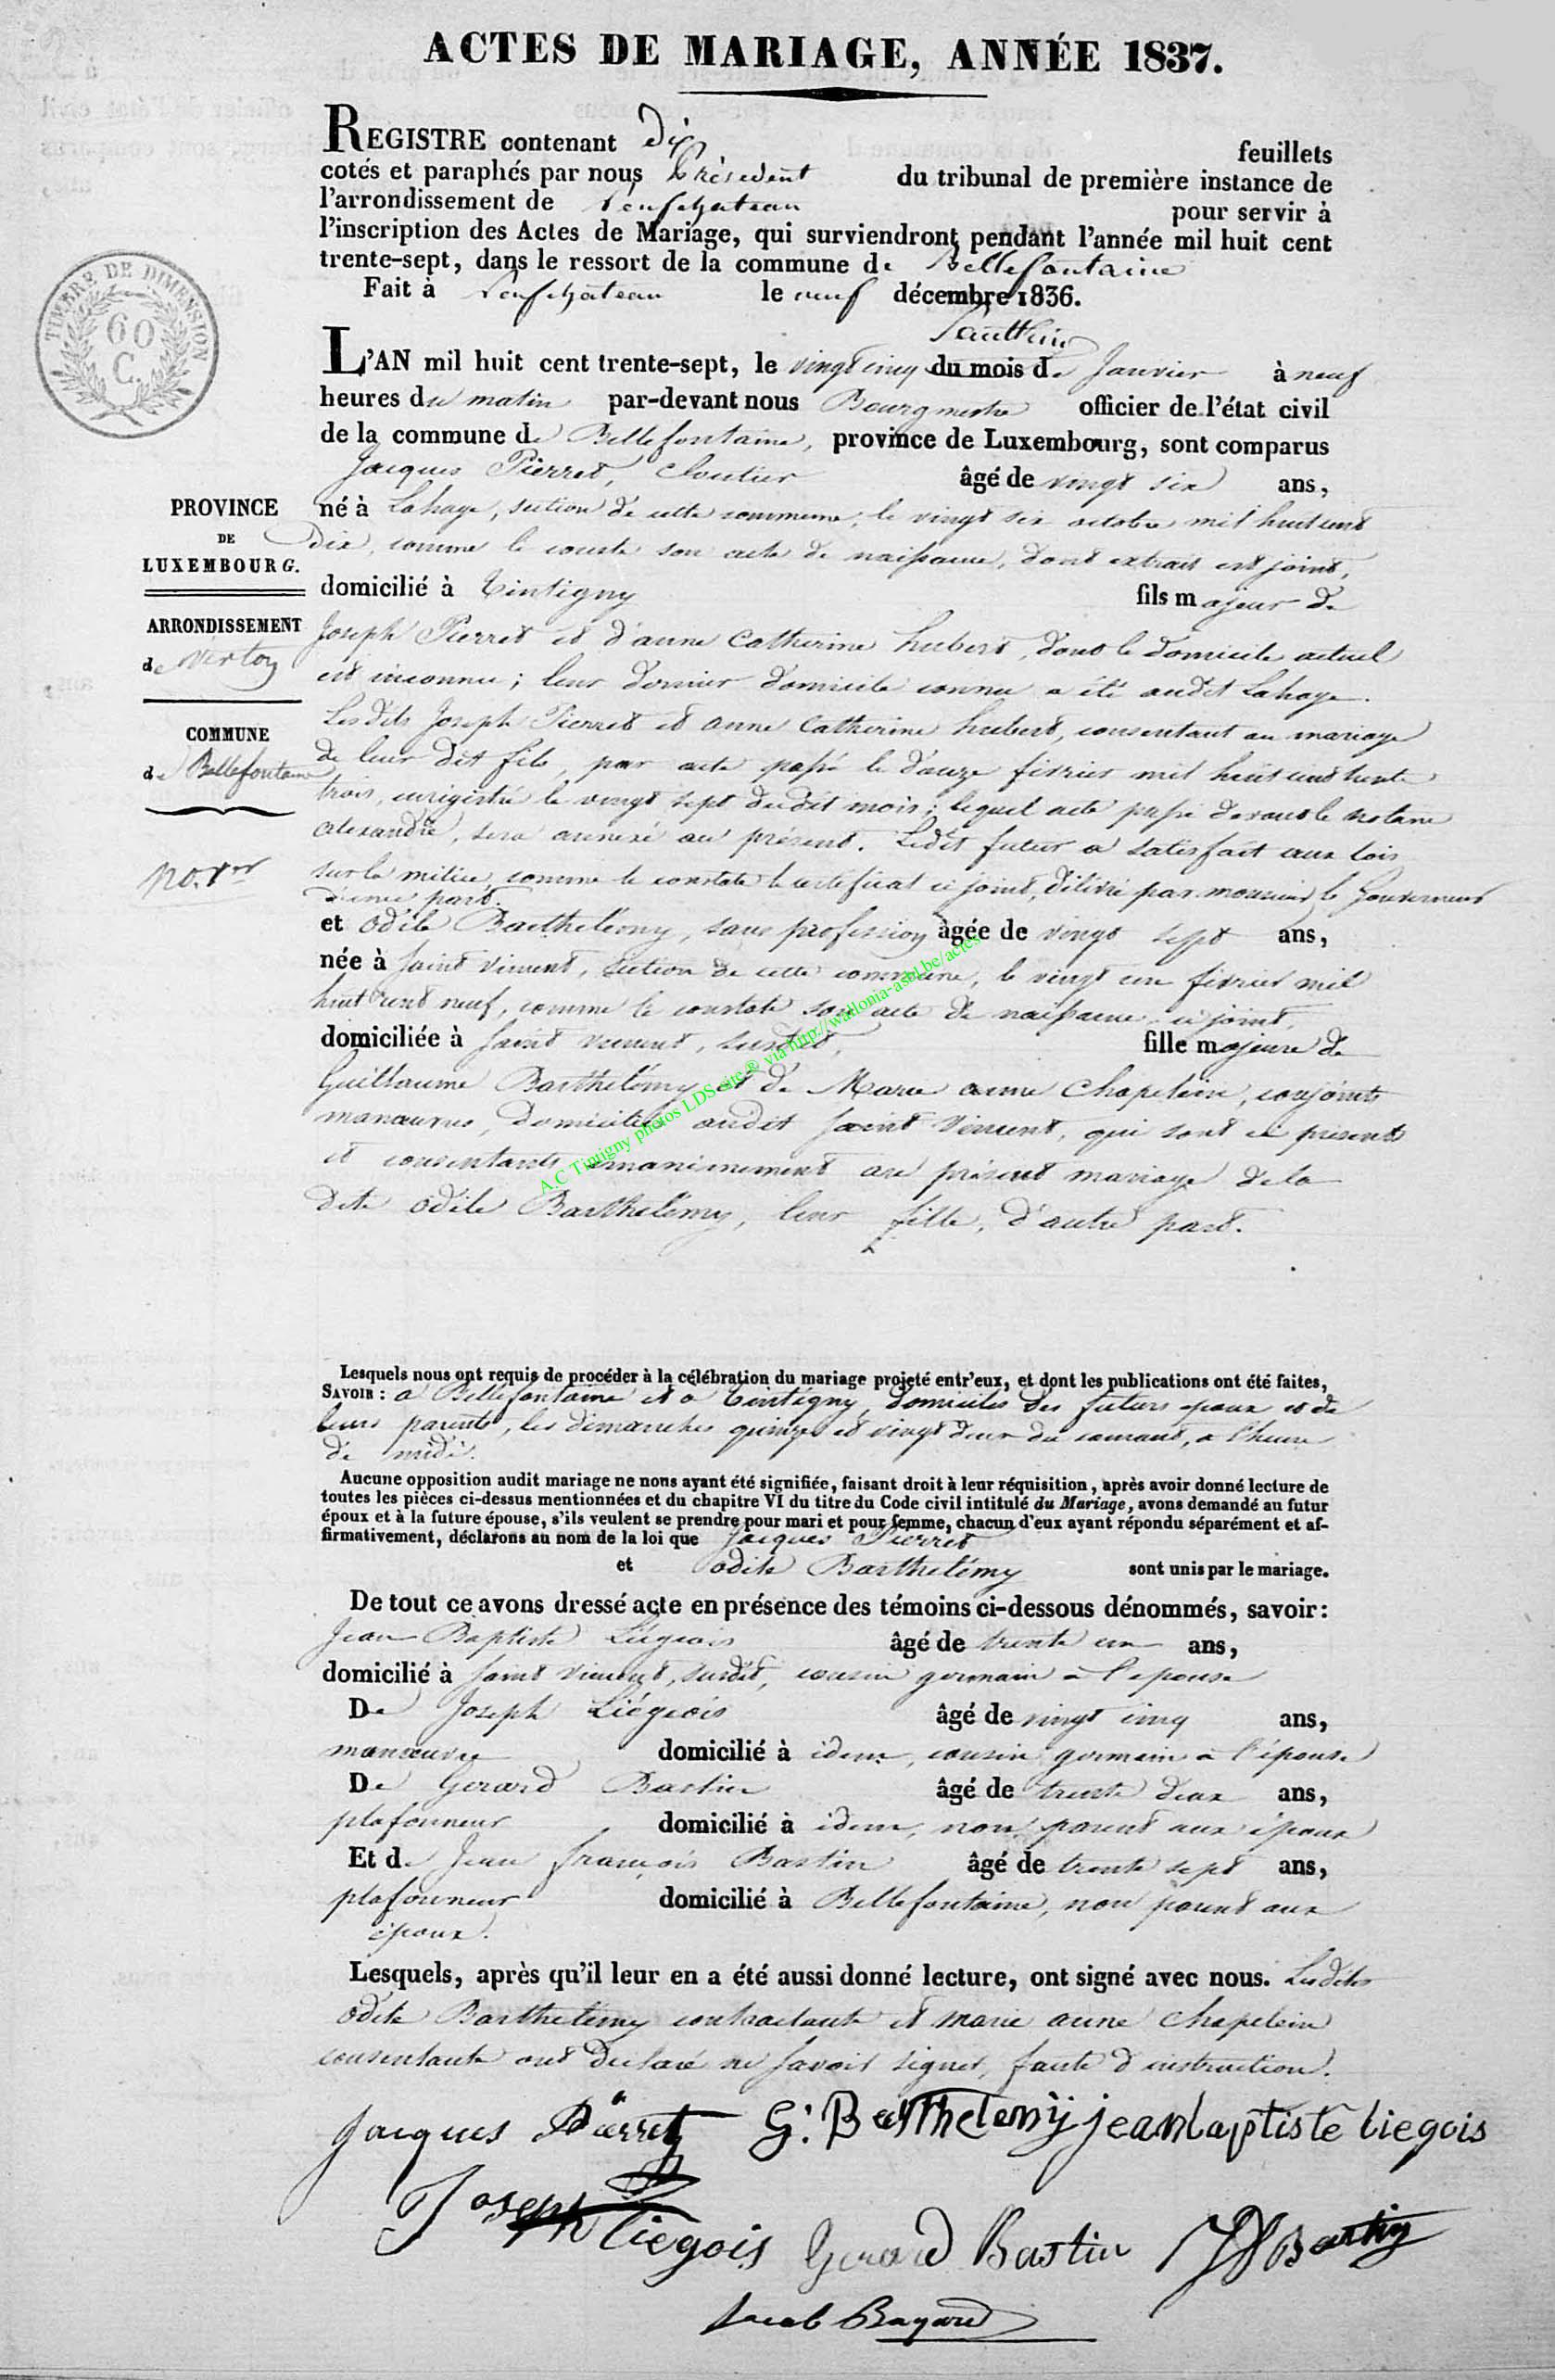 ACTES DE MARIAGE, ANNÉE 1837.
REGISTRE contenant Dix feuillets
cotés et paraphés par nous Président du tribunal de première instance de
l'arrondissement de Neufchateau pour servir à
l'inscription des Actes de Mariage, qui surviendront pendant l'année mil huit cent
trente-sept, dans le ressort de la commune de Bellefontaine
Fait à Neufchateau le neuf décembre 1836.
TIMBRE DE DIMENSION
60
C.
L'AN mil huit cent trente-sept, le vingt cinq du mois de Janvier à neuf
heures du matin par-devant nous Bourgmestre officier de l'état civil
de la commune de Bellefontaine, province de Luxembourg, sont comparus
Jacques Pierret, cloutier âgé de vingt six ans,
PROVINCE
DE
LUXEMBOURG.
ARRONDISSEMENT
de Virton
COMMUNE
de Bellefontaine
no. 1er
né à Lahage, section de cette commune, le vingt six octobre mil huit cent
dix, comme le conste son acte de naissance, dont extrait est joint,
domicilié à Tintigny fils majeur de
Joseph Pierret et d'anne Catherine hubert, dont le domicile actuel
est inconnu; leur dernier domicile connu a été audit Lahage.
Lesdits Joseph Pierret et anne Catherine hubert, consentant au mariage
de leur dit fils, par acte passé le douze février mil huit cent trente
trois, enrigistré le vingt sept dudit mois; lequel acte passé devant le notaire
alexandre, sera annexé au présent. Ledit futur a satisfait aux lois
sur la milice, comme le constate le certificat ci joint, délivré par monsieur le Gouverneur
d'une part.
et odile Barthélémy, sans profession âgée de vingt sept ans,
née à Saint Vincent, section de cette commune, le vingt un février mil
huit cent neuf, comme le constate son acte de naissance ci joint,
domiciliée à Saint Vincent, susdit, fille majeure de
Guillaume Barthélémy et de Marie anne Chapelain, conjoints
manœuvres, domiciliés audit Saint Vincent, qui sont ci présents
et consentants unanimement au présent mariage de la
dite odile Barthélémy, leur fille, d'autre part.
A.C Tintigny photos LDS site ® via http://wallonia-asbl.be/actes
Lesquels nous ont requis de procéder à la célébration du mariage projeté entr'eux, et dont les publications ont été faites,
SAVOIR : a Bellefontaine et a Tintigny, domiciles des futurs epoux et de
leurs parents, les dimanches quinze et vingt deux du courant, a l'heure
de midi.
Aucune opposition audit mariage ne nous ayant été signifiée, faisant droit à leur réquisition, après avoir donné lecture de
toutes les pièces ci-dessus mentionnées et du chapitre VI du titre du Code civil intitulé du Mariage, avons demandé au futur
époux et à la future épouse, s'ils veulent se prendre pour mari et pour femme, chacun d'eux ayant répondu séparément et af-
firmativement, déclarons au nom de la loi que Jacques Pierret
et odile Barthélémy sont unis par le mariage.
De tout ce avons dressé acte en présence des témoins ci-dessous dénommés, savoir:
Jean Baptiste Liégeois âgé de trente un ans,
domicilié à Saint Vincent, susdit, cousin germain a l'epouse
De Joseph Liégeois âgé de vingt cinq ans,
manœuvre domicilié à idem, cousin germain a l'épouse
De Gerard Bastin âgé de trente deux ans,
plafonneur domicilié à idem, non parent aux époux
Et de Jean françois Bastin âgé de trente sept ans,
plafonneur domicilié à Bellefontaine, non parent aux
époux.
Lesquels, après qu'il leur en a été aussi donné lecture, ont signé avec nous. Lesdites
odile Barthélémy contractante et marie anne Chapelain
consentante ont déclaré ne savoir signer, faute d'instruction.
Jacques Pierret G: Barthelemÿ jean baptiste liegois
Joseph liegois Gerard Bastin JF Bastin
Jacob Bayard